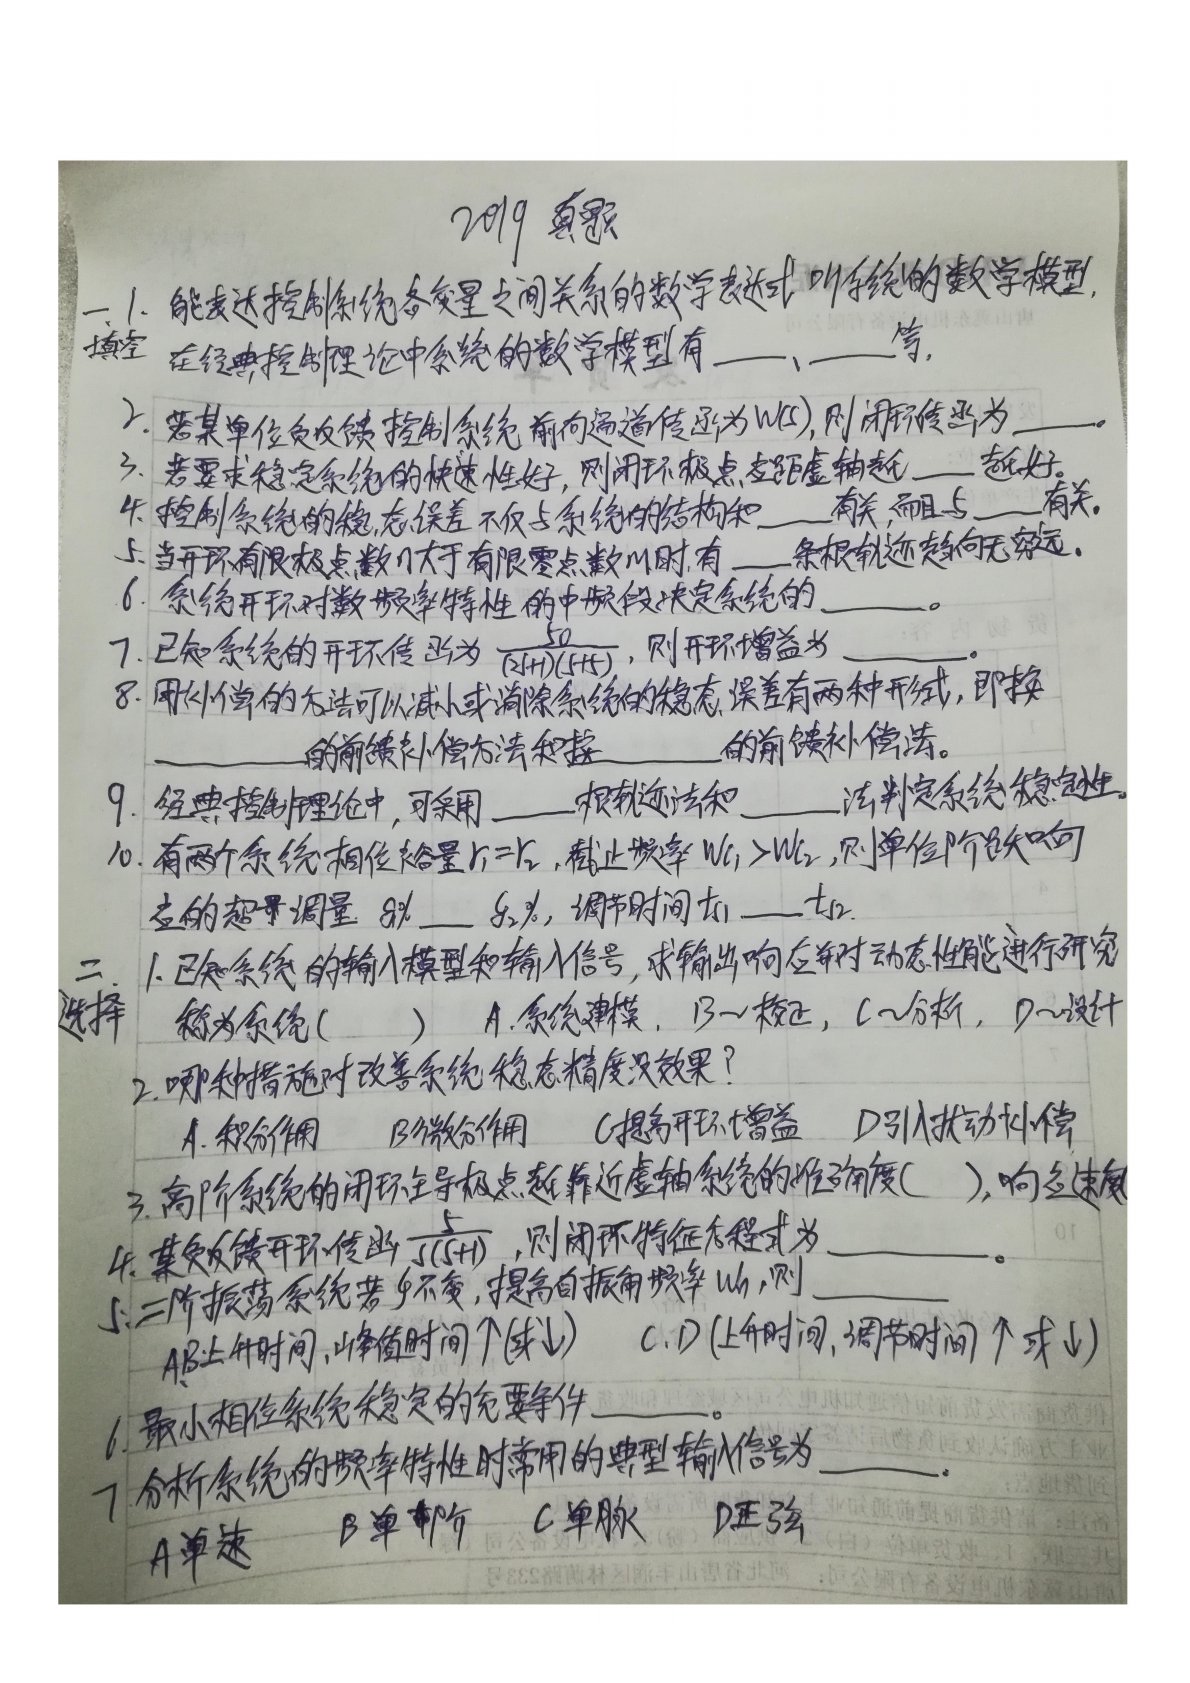 2019 真题
一.1. 能表达控制系统各变量之间关系的数学表达式叫系统的数学模型,
填空 在经典控制理论中系统的数学模型有____、____等.
2. 若某单位负反馈控制系统前向通道传函为W(s), 则闭环传函为____.
3. 若要求稳定系统的快速性好, 则闭环极点应距虚轴越____越好。
4. 控制系统的稳态误差不仅与系统的结构和____有关,而且与____有关.
5. 当开环有限极点数n大于有限零点数m时,有____条根轨迹趋向无穷远.
6. 系统开环对数频率特性的中频段决定系统的____。
7. 已知系统的开环传函为 50/(2s+1)(s+5), 则开环增益为____.
8. 用补偿的方法可以减小或消除系统的稳态误差有两种形式, 即按
____的前馈补偿方法和按____的前馈补偿法。
9. 经典控制理论中,可采用____根轨迹法和____法判定系统稳定性。
10. 有两个系统相位裕量r₁=r₂, 截止频率Wc₁>Wc₂, 则单位阶跃响
应的超调量 δ₁%____δ₂%, 调节时间ts1____ts2.
二. 1. 已知系统的输入模型和输入信号, 求输出响应并对动态性能进行研究
选择 称为系统( ) A.系统建模. B~校正, C~分析, D~设计
2. 哪种措施对改善系统稳态精度没效果?
A. 积分作用 B微分作用 C提高开环增益 D引入扰动补偿
3. 高阶系统的闭环主导极点越靠近虚轴系统的准确度( ), 响应速度
4. 某负反馈开环传函 5/s(s+1), 则闭环特征方程式为____。
5. 二阶振荡系统若ξ不变, 提高自振角频率Wn,则____
A.B:上升时间, 峰值时间↑(或↓) C.D(上升时间, 调节时间↑或↓)
6. 最小相位系统稳定的充要条件____。
7 分析系统的频率特性时常用的典型输入信号为____.
A单速 B单阶 C单脉 D正弦